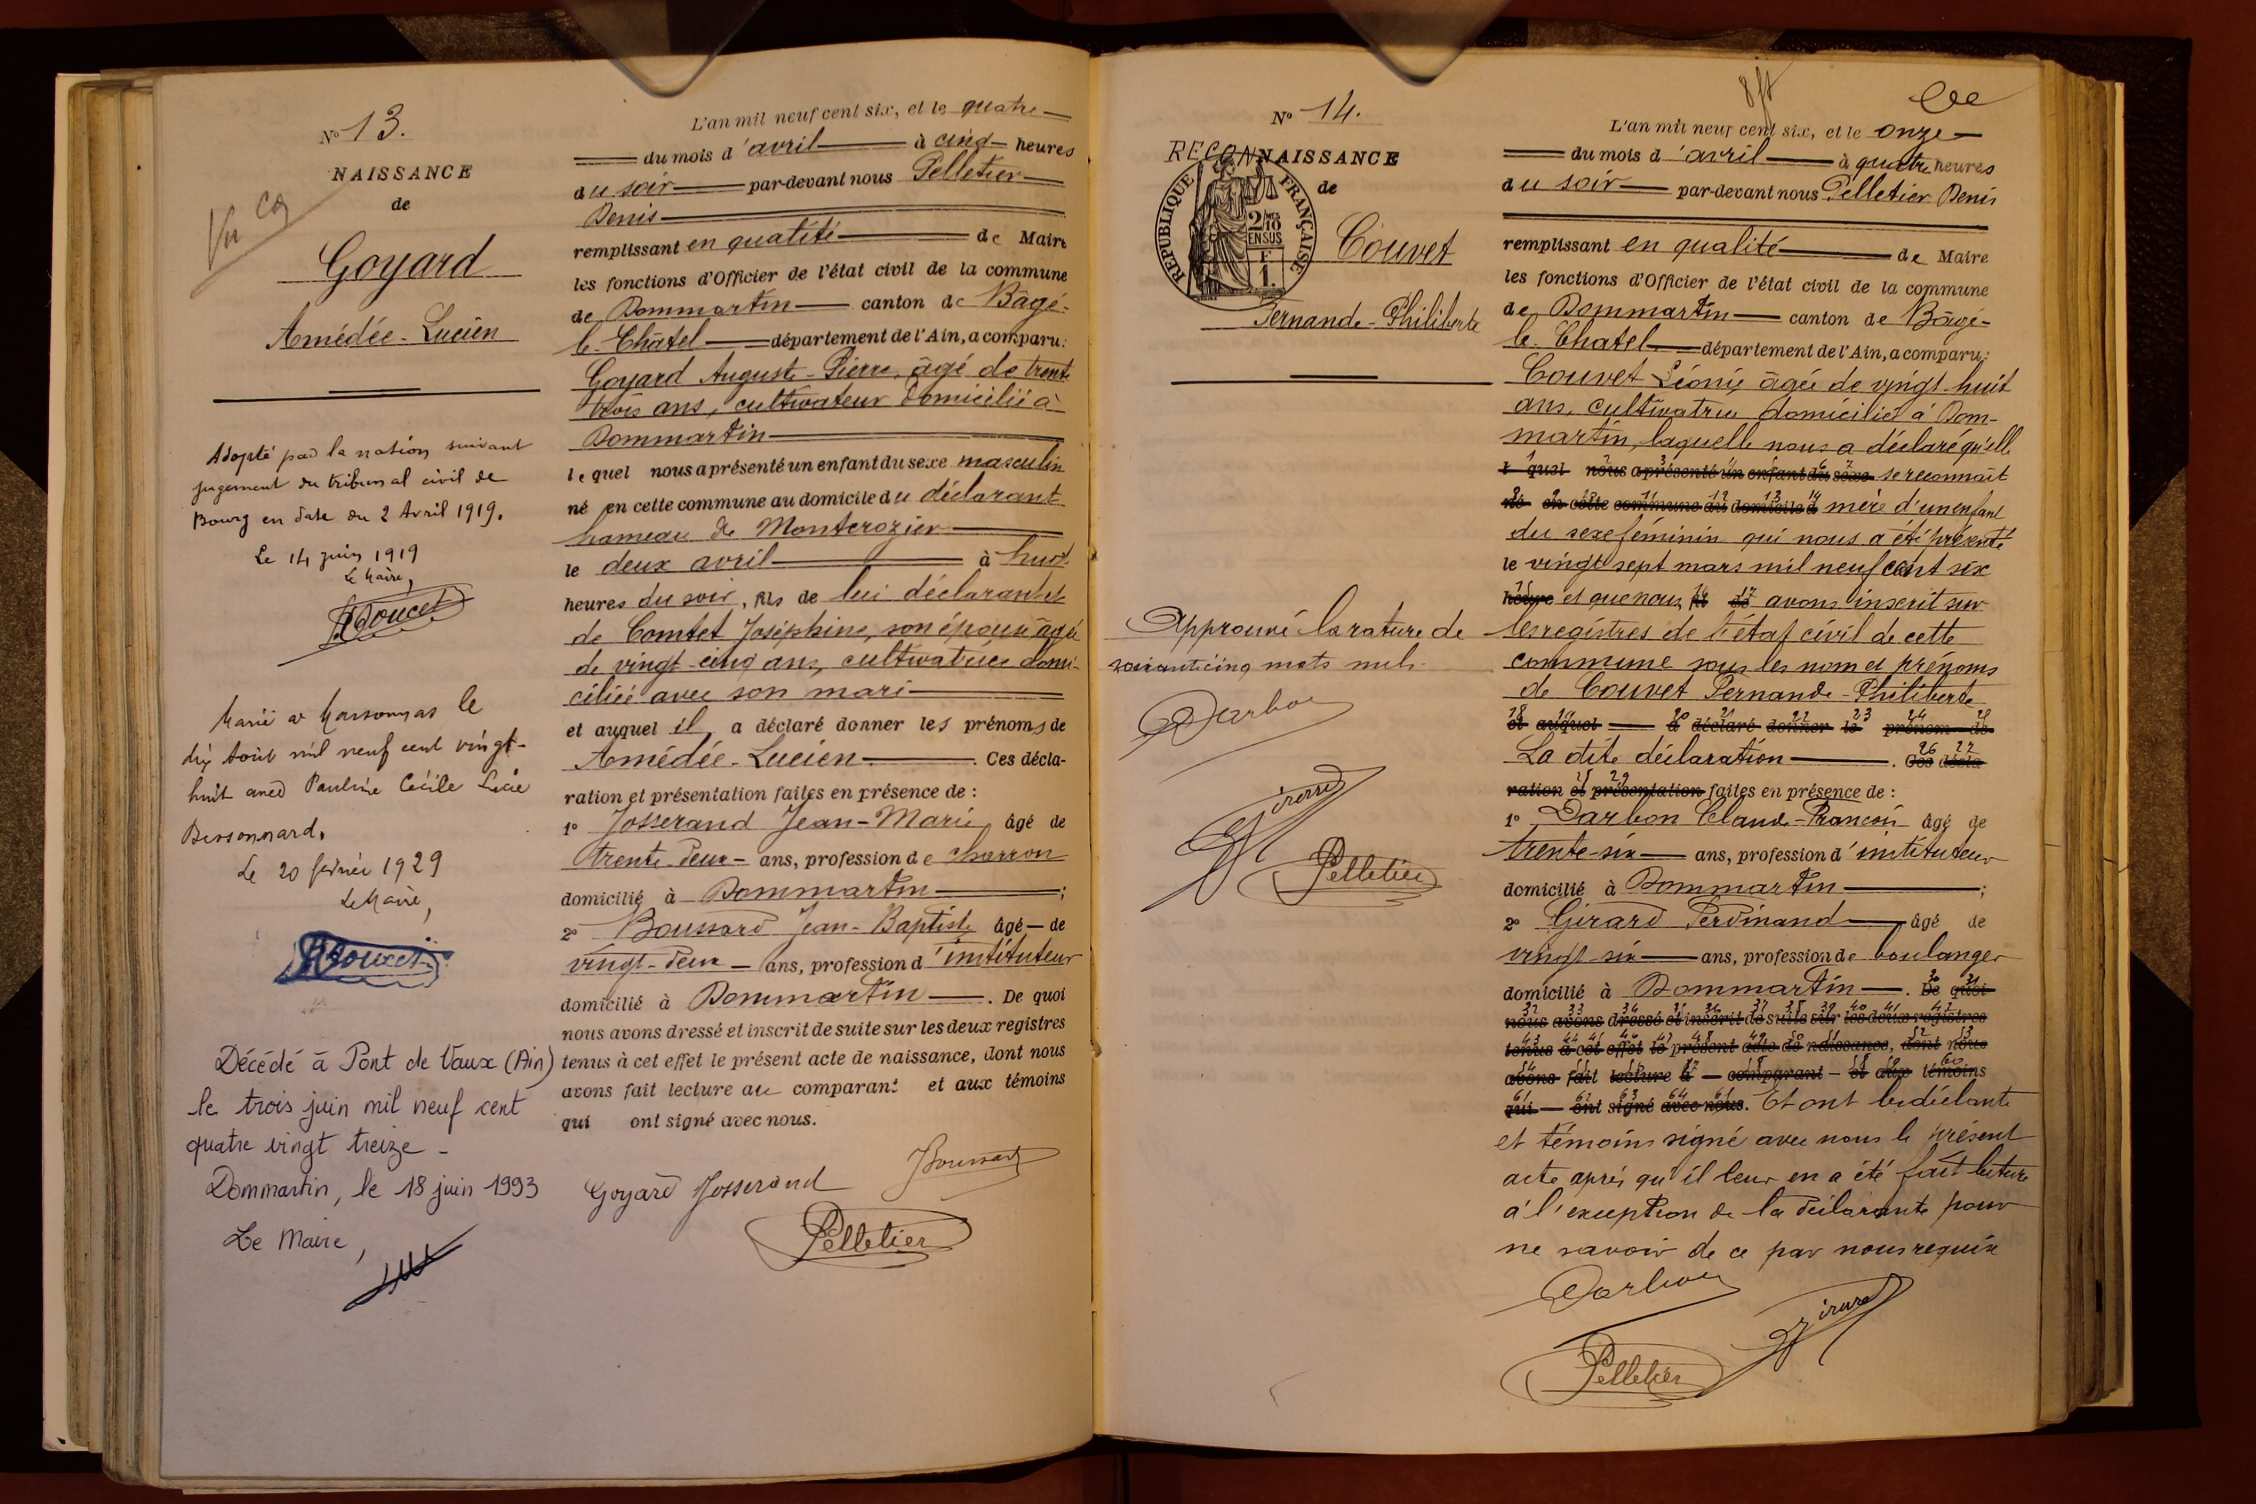 N° 13.
NAISSANCE
de
Goyard
Amédée-Lucien
Vu
Adopté par la nation suivant
jugement du tribunal civil de
Bourg en date du 2 Avril 1919.
Le 14 juin 1919
Le Maire,
Doucet
Marié à Marsonnas le
dix Août mil neuf cent vingt-
huit avec Pauline Cécile Lucie
Bissonnard.
Le 20 février 1929
Le Maire,
Doucet
Décédé à Pont de Vaux (Ain)
le trois juin mil neuf cent
quatre vingt treize -
Dommartin, le 18 juin 1993
Le Maire,
L'an mil neuf cent six, et le quatre
du mois d'avril à cinq heures
du soir par-devant nous Pelletier
Denis
remplissant en qualité de Maire
les fonctions d'Officier de l'état civil de la commune
de Dommartin canton de Bâgé-
le-Châtel département de l'Ain, a comparu:
Goyard Auguste-Pierre, âgé de trente
trois ans, cultivateur domicilié à
Dommartin
lequel nous a présenté un enfant du sexe masculin
né en cette commune au domicile du déclarant
hameau de Monterozier
le deux avril à huit
heures du soir, fils de lui déclarant et
de Comtet Joséphine, son épouse âgée
de vingt-cinq ans, cultivatrice domi-
ciliée avec son mari
et auquel il a déclaré donner les prénoms de
Amédée-Lucien. Ces décla-
ration et présentation faites en présence de :
1° Josserand Jean-Marie, âgé de
trente-deux ans, profession de charron
domicilié à Dommartin ;
2° Boussard Jean-Baptiste âgé de
vingt-deux ans, profession d'instituteur
domicilié à Dommartin. De quoi
nous avons dressé et inscrit de suite sur les deux registres
tenus à cet effet le présent acte de naissance, dont nous
avons fait lecture au comparant et aux témoins
qui ont signé avec nous.
Goyard Josserand JBoussard
Pelletier
N° 14.
RECONNAISSANCE
de
REPUBLIQUE FRANÇAISE
2/10
EN SUS
F
1.
Couvet
Fernande-Philiberte
Approuvé la rature de
soixante cinq mots nuls.
Darbon
Girard
Pelletier
L'an mil neuf cent six, et le onze
du mois d'avril à quatre heures
du soir par-devant nous Pelletier Denis
remplissant en qualité de Maire
les fonctions d'Officier de l'état civil de la commune
de Dommartin canton de Bâgé-
le-Châtel département de l'Ain, a comparu:
Couvet Léonie âgée de vingt-huit
ans, cultivatrice domiciliée à Dom-
martin, laquelle nous a déclaré qu'elle
1 2 3 4 5 6 7
l quel nous a présenté un enfant du sexe se reconnaît
8 9 10 11 12 13 14
né en cette commune au domicile d mère d'un enfant
du sexe féminin qui nous a été présenté
le vingt sept mars mil neuf cent six
15 16 17
heure et que nous fil de avons inscrit sur
les registres de l'état civil de cette
commune sous les nom et prénoms
de Couvet Fernande-Philiberte
18 19 20 21 22 23 24 25
et auquel a déclaré donner le prénom de
26 27
La dite déclaration. Ces décla-
28 29
ration et présentation faites en présence de :
1° Darbon Claude-François âgé de
trente-six ans, profession d'instituteur
domicilié à Dommartin ;
2° Girard Ferdinand âgé de
vingt-six ans, profession de boulanger
30 31
domicilié à Dommartin. De quoi
32 33 34 35 36 37 38 39 40 41 42
nous avons dressé et inscrit de suite sur les deux registres
tenus à cet effet le présent acte de naissance, dont nous
avons fait lecture à comparant et aux témoins
qui ont signé avec nous. Et ont les déclarante
et témoins signé avec nous le présent
acte après qu'il leur en a été fait lecture
à l'exception de la déclarante pour
ne savoir de ce par nous requise
Darbon
Girard
Pelletier